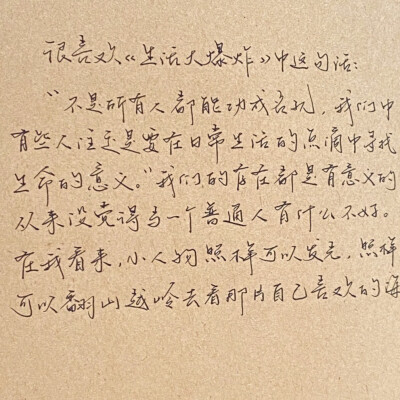 很喜欢《生活大爆炸》中这句话：
“不是所有人都能功成名就，我们中
有些人注定是要在日常生活的点滴中寻找
生命的意义。”我们的存在都是有意义的
从来没觉得当一个普通人有什么不好。
在我看来，小人物照样可以发光，照样
可以翻山越岭去看那片自己喜欢的海